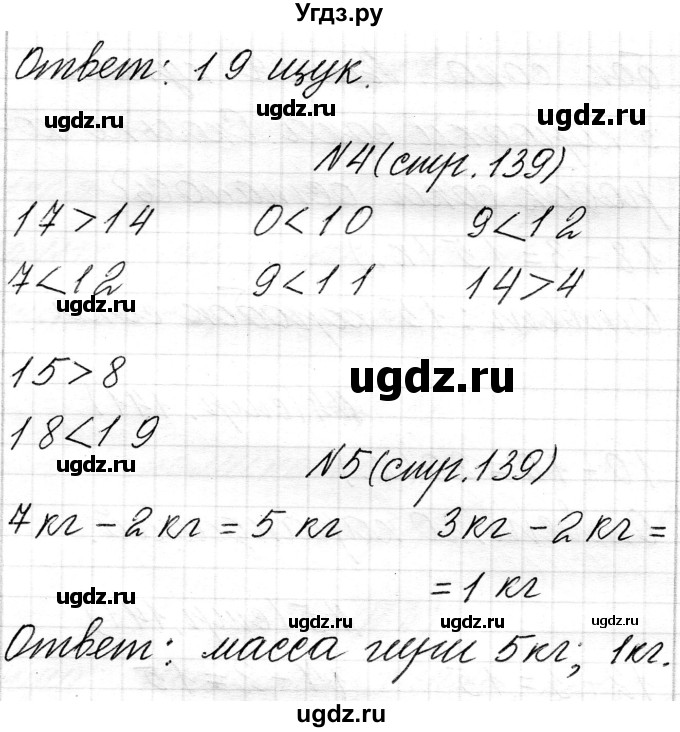 Угдз.ру
Ответ: 19 щук.
ugdz.ru ugdz.ru ugdz.ru
N4(стр.139)
17>14 0<10 9<12
7<12 9<11 14>4
ugdz.ru
15>8
ugdz.ru
18<19
ugdz.ru
N5(стр.139)
7кг - 2кг = 5 кг 3кг - 2кг =
= 1 кг
ugdz.ru ugdz.ru ugdz.ru ugdz.ru
Ответ: масса 5кг; 1кг.
ugdz.ru